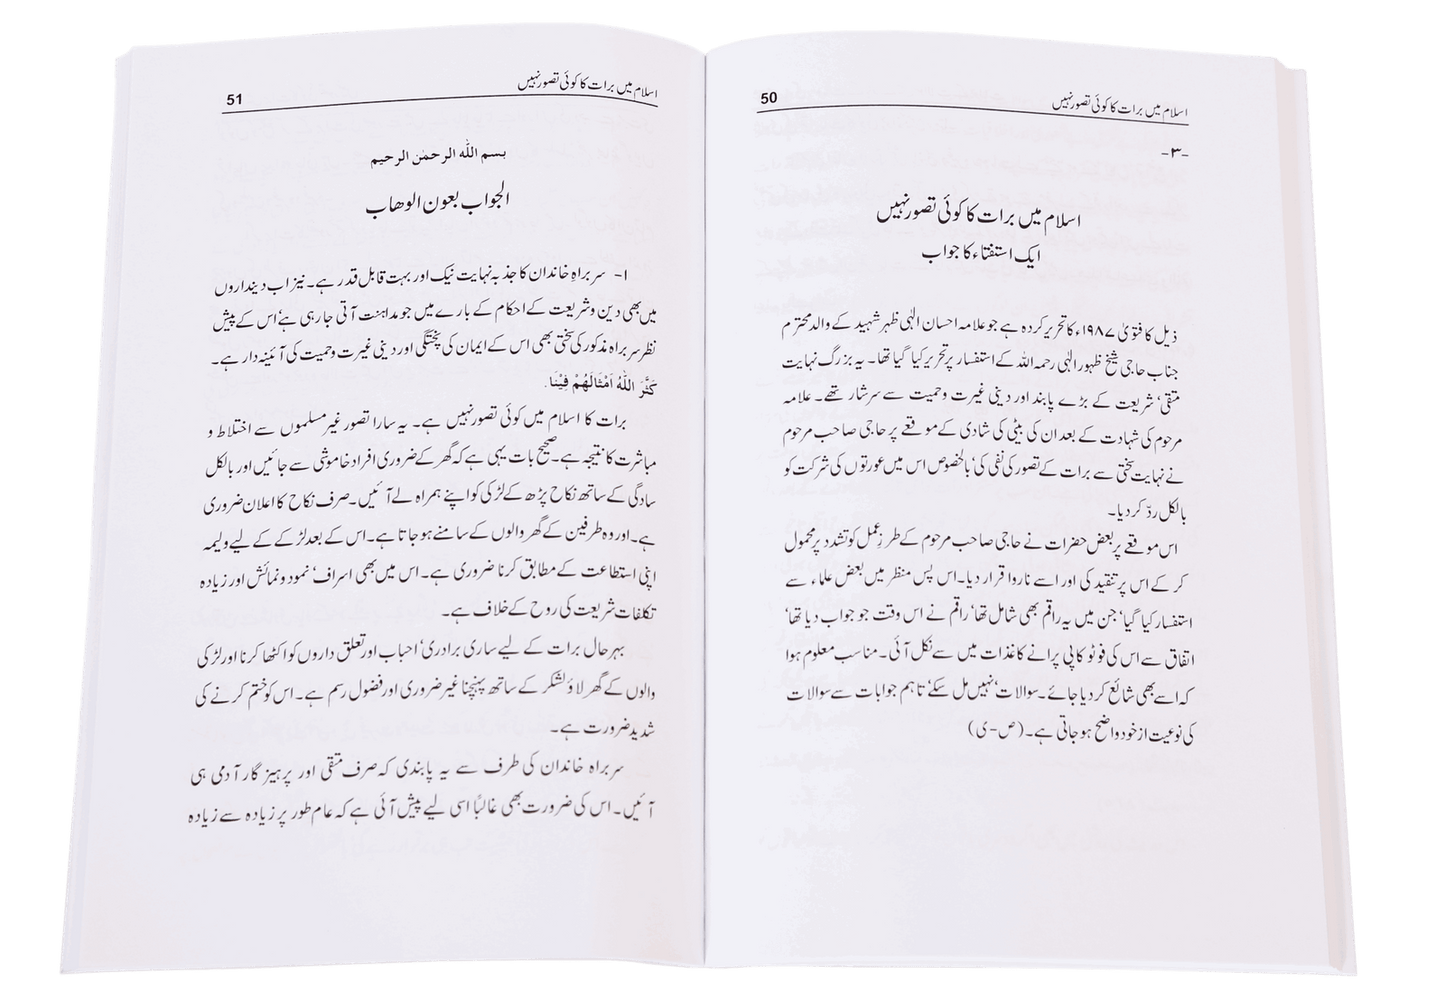 اسلام میں برات کا کوئی تصور نہیں 50
-۳-
اسلام میں برات کا کوئی تصور نہیں
ایک استفتاء کا جواب
ذیل کا فتویٰ ۱۹۸۷ء کا تحریر کردہ ہے جو علامہ احسان الٰہی ظہیر شہید کے والد محترم
جناب حاجی شیخ ظہور الٰہی رحمہ اللہ کے استفسار پر تحریر کیا گیا تھا۔ یہ بزرگ نہایت
متقی‘ شریعت کے بڑے پابند اور دینی غیرت وحمیت سے سرشار تھے۔ علامہ
مرحوم کی شہادت کے بعد ان کی بیٹی کی شادی کے موقعے پر حاجی صاحب مرحوم
نے نہایت سختی سے برات کے تصور کی نفی کی‘ بالخصوص اس میں عورتوں کی شرکت کو
بالکل ردّ کر دیا۔
اس موقعے پر بعض حضرات نے حاجی صاحب مرحوم کے طرزِ عمل کو تشدد پر محمول
کر کے اس پر تنقید کی اور اسے ناروا قرار دیا۔ اس پس منظر میں بعض علماء سے
استفسار کیا گیا‘ جن میں یہ راقم بھی شامل تھا‘ راقم نے اس وقت جو جواب دیا تھا‘
اتفاق سے اس کی فوٹو کاپی پرانے کاغذات میں سے نکل آئی۔ مناسب معلوم ہوا
کہ اسے بھی شائع کر دیا جائے۔ سوالات‘ نہیں مل سکے‘ تاہم جوابات سے سوالات
کی نوعیت از خود واضح ہو جاتی ہے۔ (ص-ی)
اسلام میں برات کا کوئی تصور نہیں 51
بسم اللہ الرحمٰن الرحیم
الجواب بعون الوھاب
۱- سربراہِ خاندان کا جذبہ نہایت نیک اور بہت قابل قدر ہے۔ نیز اب دینداروں
میں بھی دین و شریعت کے احکام کے بارے میں جو مداہنت آتی جا رہی ہے‘ اس کے پیش
نظر سربراہ مذکور کی سختی بھی اس کے ایمان کی پختگی اور دینی غیرت وحمیت کی آئینہ دار ہے۔
کَثَّرَ اللّٰہُ اَمْثَالَھُمْ فِیْنَا.
برات کا اسلام میں کوئی تصور نہیں ہے۔ یہ سارا تصور غیر مسلموں سے اختلاط و
مباشرت کا نتیجہ ہے۔ صحیح بات یہی ہے کہ گھر کے ضروری افراد خاموشی سے جائیں اور بالکل
سادگی کے ساتھ نکاح پڑھ کے لڑکی کو اپنے ہمراہ لے آئیں۔ صرف نکاح کا اعلان ضروری
ہے۔ اور وہ طرفین کے گھر والوں کے سامنے ہو جاتا ہے۔ اس کے بعد لڑکے کے لیے ولیمہ
اپنی استطاعت کے مطابق کرنا ضروری ہے۔ اس میں بھی اسراف‘ نمود و نمائش اور زیادہ
تکلفات شریعت کی روح کے خلاف ہے۔
بہر حال برات کے لیے ساری برادری‘ احباب اور تعلق داروں کو اکٹھا کرنا اور لڑکی
والوں کے گھر لاؤ لشکر کے ساتھ پہنچنا غیر ضروری اور فضول رسم ہے۔ اس کو ختم کرنے کی
شدید ضرورت ہے۔
سربراہ خاندان کی طرف سے یہ پابندی کہ صرف متقی اور پرہیز گار آدمی ہی
آئیں۔ اس کی ضرورت بھی غالباً اسی لیے پیش آئی ہے کہ عام طور پر زیادہ سے زیادہ